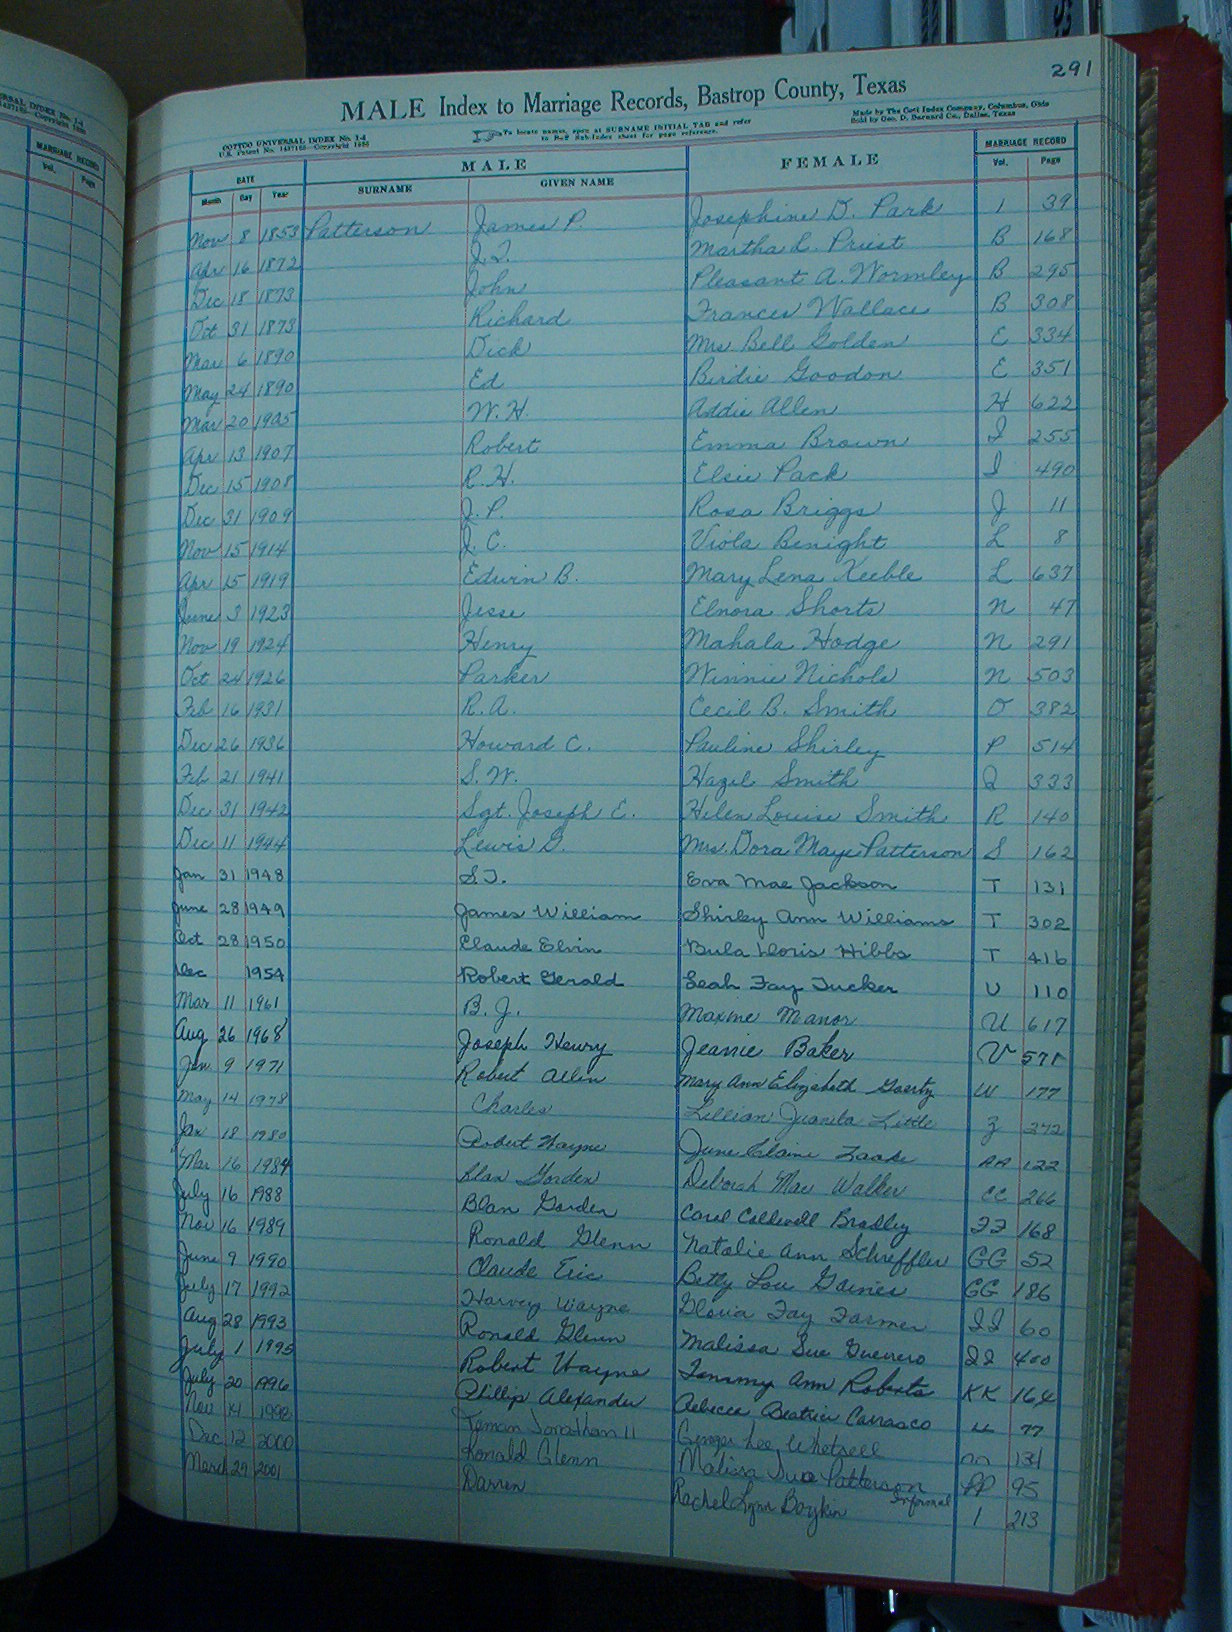 291
MALE Index to Marriage Records, Bastrop County, Texas
COTTCO UNIVERSAL INDEX No. 1-4
To locate names, open at SURNAME INITIAL TAB and refer
to Buff Sub-Index sheet for page reference.
Made by The Cott Index Company, Columbus, Ohio
Sold by Geo. D. Barnard Co., Dallas, Texas
DATE MALE FEMALE MARRIAGE RECORD
Month Day Year SURNAME GIVEN NAME Vol. Page
Nov 8 1853 Patterson James P. Josephine D. Park 1 39
Apr 16 1872 J.T. Martha L. Priest B 168
Dec 18 1873 John Pleasant A. Wormley B 295
Oct 31 1873 Richard Frances Wallace B 308
Mar 6 1890 Dick Mrs. Bell Golden E 334
May 24 1890 Ed Birdie Goodon E 351
Mar 20 1905 W. H. Addie Allen H 622
Apr 13 1907 Robert Emma Brown I 255
Dec 15 1908 R. H. Elsie Pack I 490
Dec 31 1909 J. P. Rosa Briggs J 11
Nov 15 1914 J. C. Viola Benight L 8
Apr 15 1919 Edwin B. Mary Lena Keeble L 637
June 3 1923 Jesse Elnora Shorts N 47
Nov 19 1924 Henry Mahala Hodge N 291
Oct 24 1926 Parker Winnie Nichols N 503
Feb 16 1931 R. A. Cecil B. Smith O 382
Dec 26 1936 Howard C. Pauline Shirley P 514
Feb 21 1941 S. W. Hazel Smith Q 333
Dec 31 1942 Sgt. Joseph E. Helen Louise Smith R 140
Dec 11 1944 Lewis G. Mrs. Dora Maye Patterson S 162
Jan 31 1948 S.T. Eva Mae Jackson T 131
June 28 1949 James William Shirley Ann Williams T 302
Oct 28 1950 Claude Elvin Bula Doris Hibbs T 416
Dec 1954 Robert Gerald Leah Fay Tucker U 110
Mar 11 1961 B. J. Maxine Manor U 617
Aug 26 1968 Joseph Henry Jeanie Baker V 571
Jan 9 1971 Robert Allen Mary Ann Elizabeth Goertz W 177
May 14 1978 Charles Lillian Juanita Little Z 272
Jan 18 1980 Robert Wayne June Elaine AA 122
Mar 16 1984 Alan Gorden Deborah Mae Walker CC 266
July 16 1988 Blan Garden Carol Caldwell Bradley FF 168
Nov 16 1989 Ronald Glenn Natalie Ann Schreffler GG 52
June 9 1990 Claude Eric Betty Lou Gaines GG 186
July 17 1992 Harvey Wayne Gloria Fay Farmer II 60
Aug 28 1993 Ronald Glenn Malissa Sue Guerrero II 400
July 1 1995 Robert Wayne Tammy Ann Roberts KK 164
July 20 1996 Phillip Alexander Rebecca Beatrice Carrasco LL 77
Nov 14 1998 Jonathan II Lee Whetsell nn 131
Dec 12 2000 Ronald Glenn Malissa Sue Patterson PP 95
March 29 2001 Darren Rachel Lynn Boykin Informal 1 213